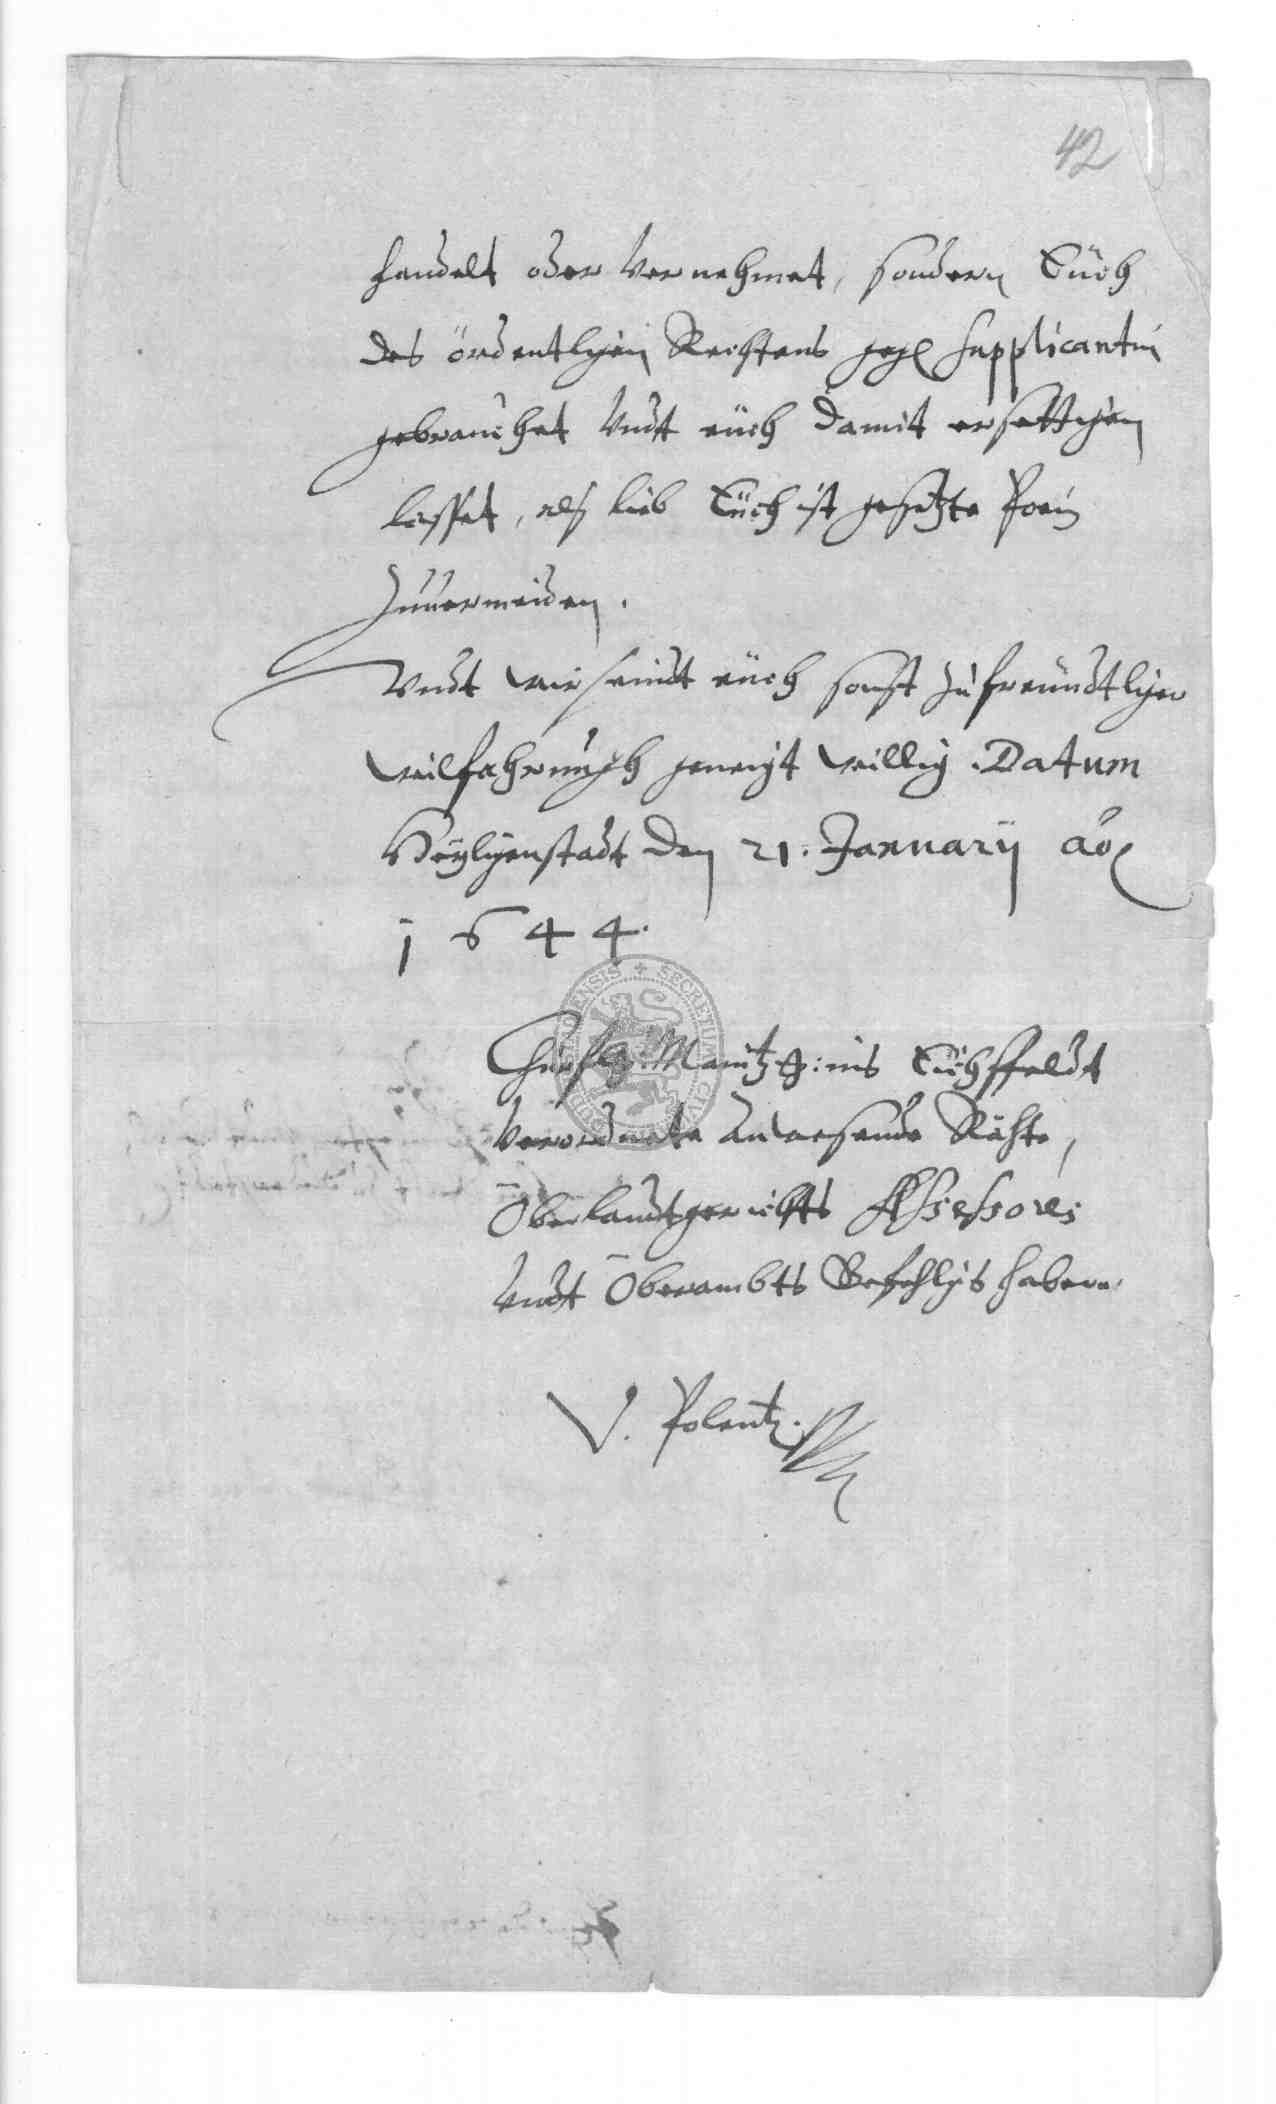 42
handelt oder vernehmet, sondern Eüch
des ördentlichen Rechtens gegen Supplicantin
gebrauchet Vndt eüch damit ersettigen
lasset, als lieb Eüch ist gesetzte Poen
zuuermeiden.
Vndt wir seindt eüch sonst zu freündtlicher
wilfahrungh geneigt willig. Datum
Heyligenstadt den 21. Januarij ao
1644.
Churf. Maintz. ufm Eichsfeldt
Verordnete anwesende Räthe,
Oberlandtgerichts Assessores
Vndt Oberambts Befehlichs habere.
V. Polentz.
SECRETUM CIVI